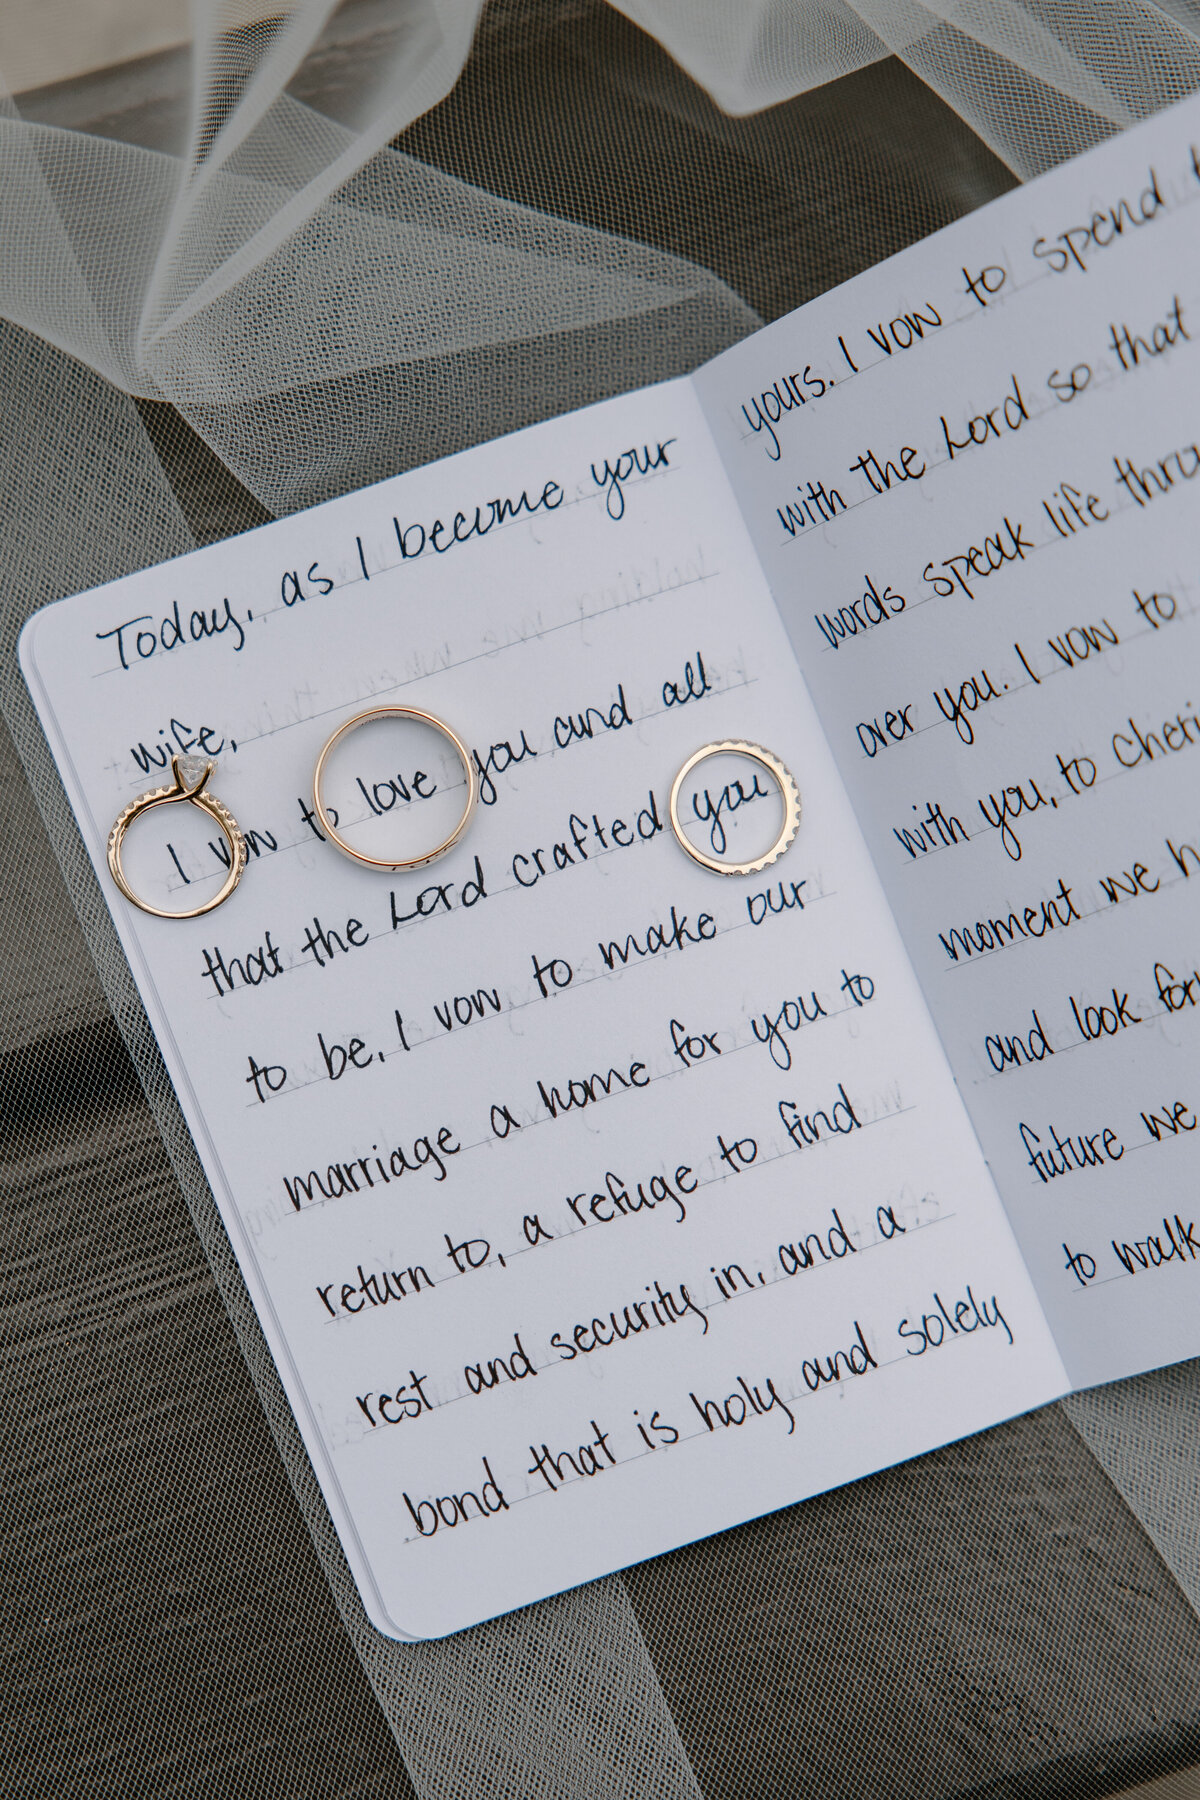 Today, as I become your
wife,
I vow to love you and all
that the Lord crafted you
to be. I vow to make our
marriage a home for you to
return to, a refuge to find
rest and security in, and a
bond that is holy and solely
yours. I vow to spend
with the Lord so that
words speak life
over you. I vow to
with you, to
moment we
and look
future we
to walk